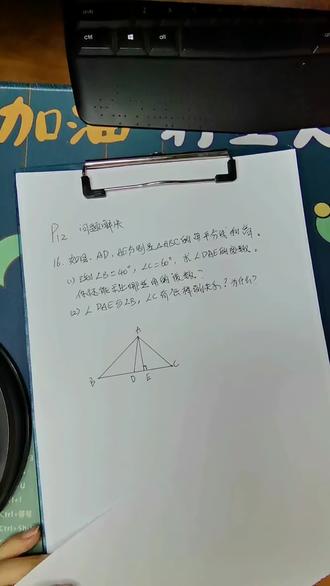 ctrl
alt
加油
P12 问题解决
16. 如图, AD, AE分别是△ABC的角平分线和高。
(1) 已知∠B=40°, ∠C=60°, 求∠DAE的度数。
你还能求出哪些角的度数?
(2) ∠DAE与∠B, ∠C有怎样的关系? 为什么?
A
B D E C
Ctrl+Sh